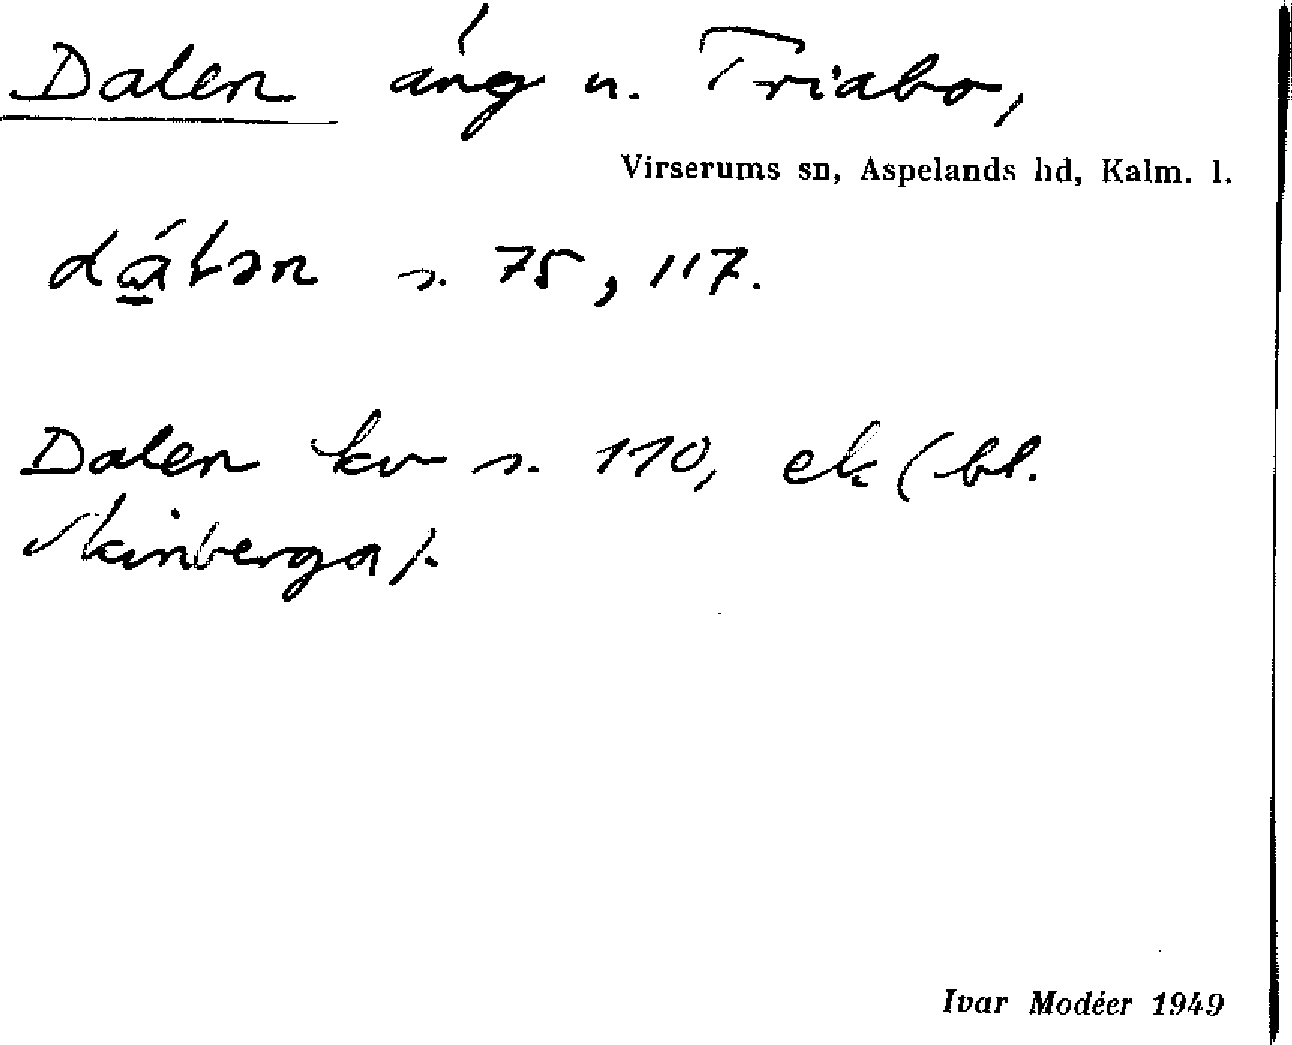 Dalen äng u. Triabo,
Virserums sn, Aspelands hd, Kalm. l.
s. 75, 117.
Dalen kv s. 110, ek (bl.
Skinberga).
Ivar Modéer 1949